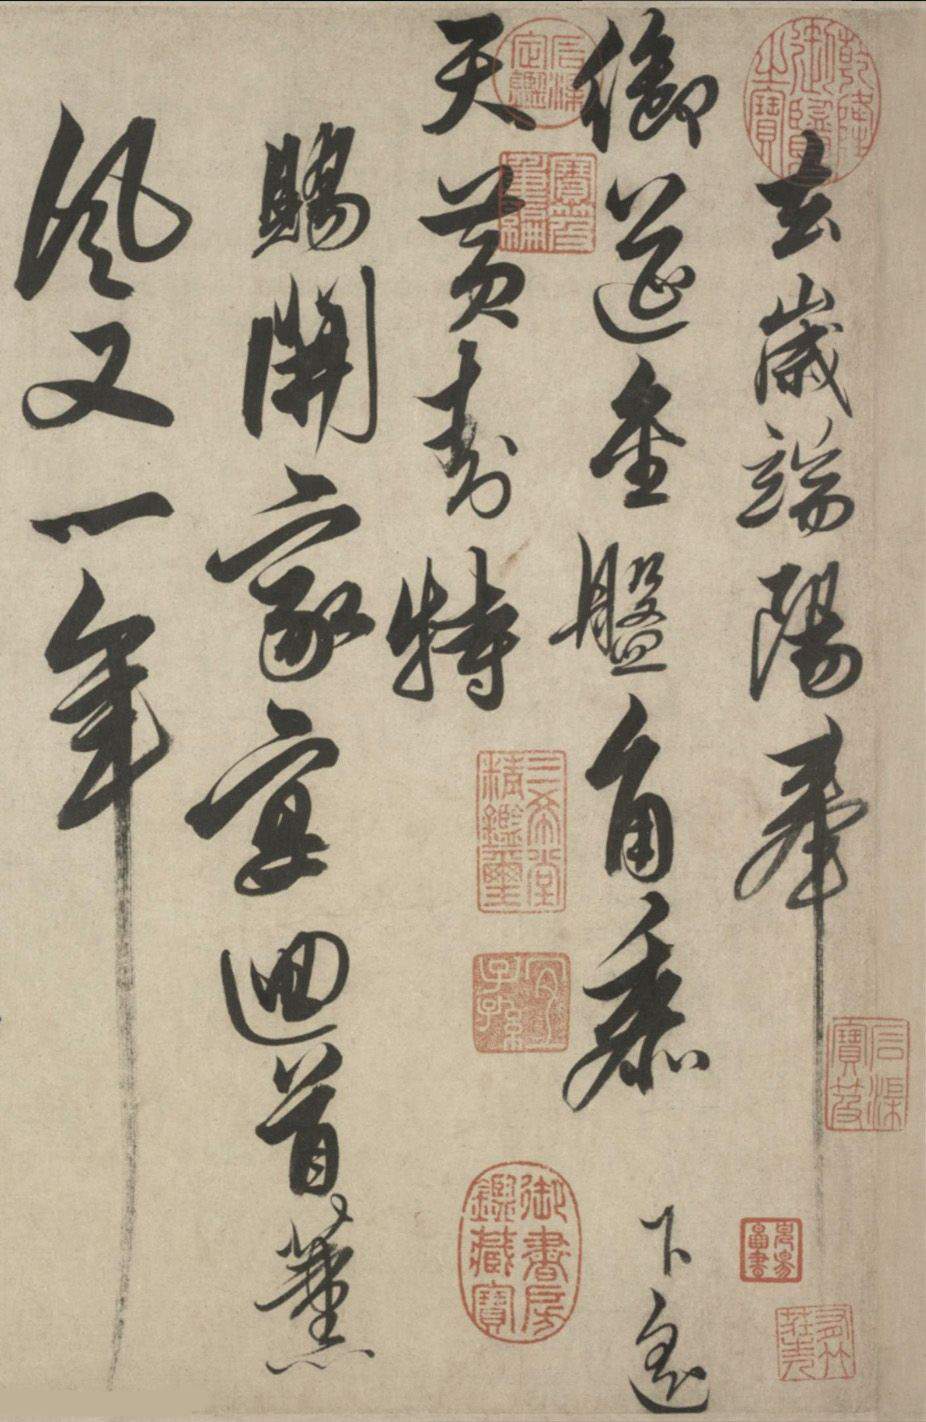 去歲端陽奉
御筵金盤角黍下遙
天黃封特
賜開家宴迴首薰
風又一年
乾隆御覽之寶
石渠定鑑
寶笈重編
三希堂精鑑璽
宜子孫
御書房鑑藏寶
石渠寶笈